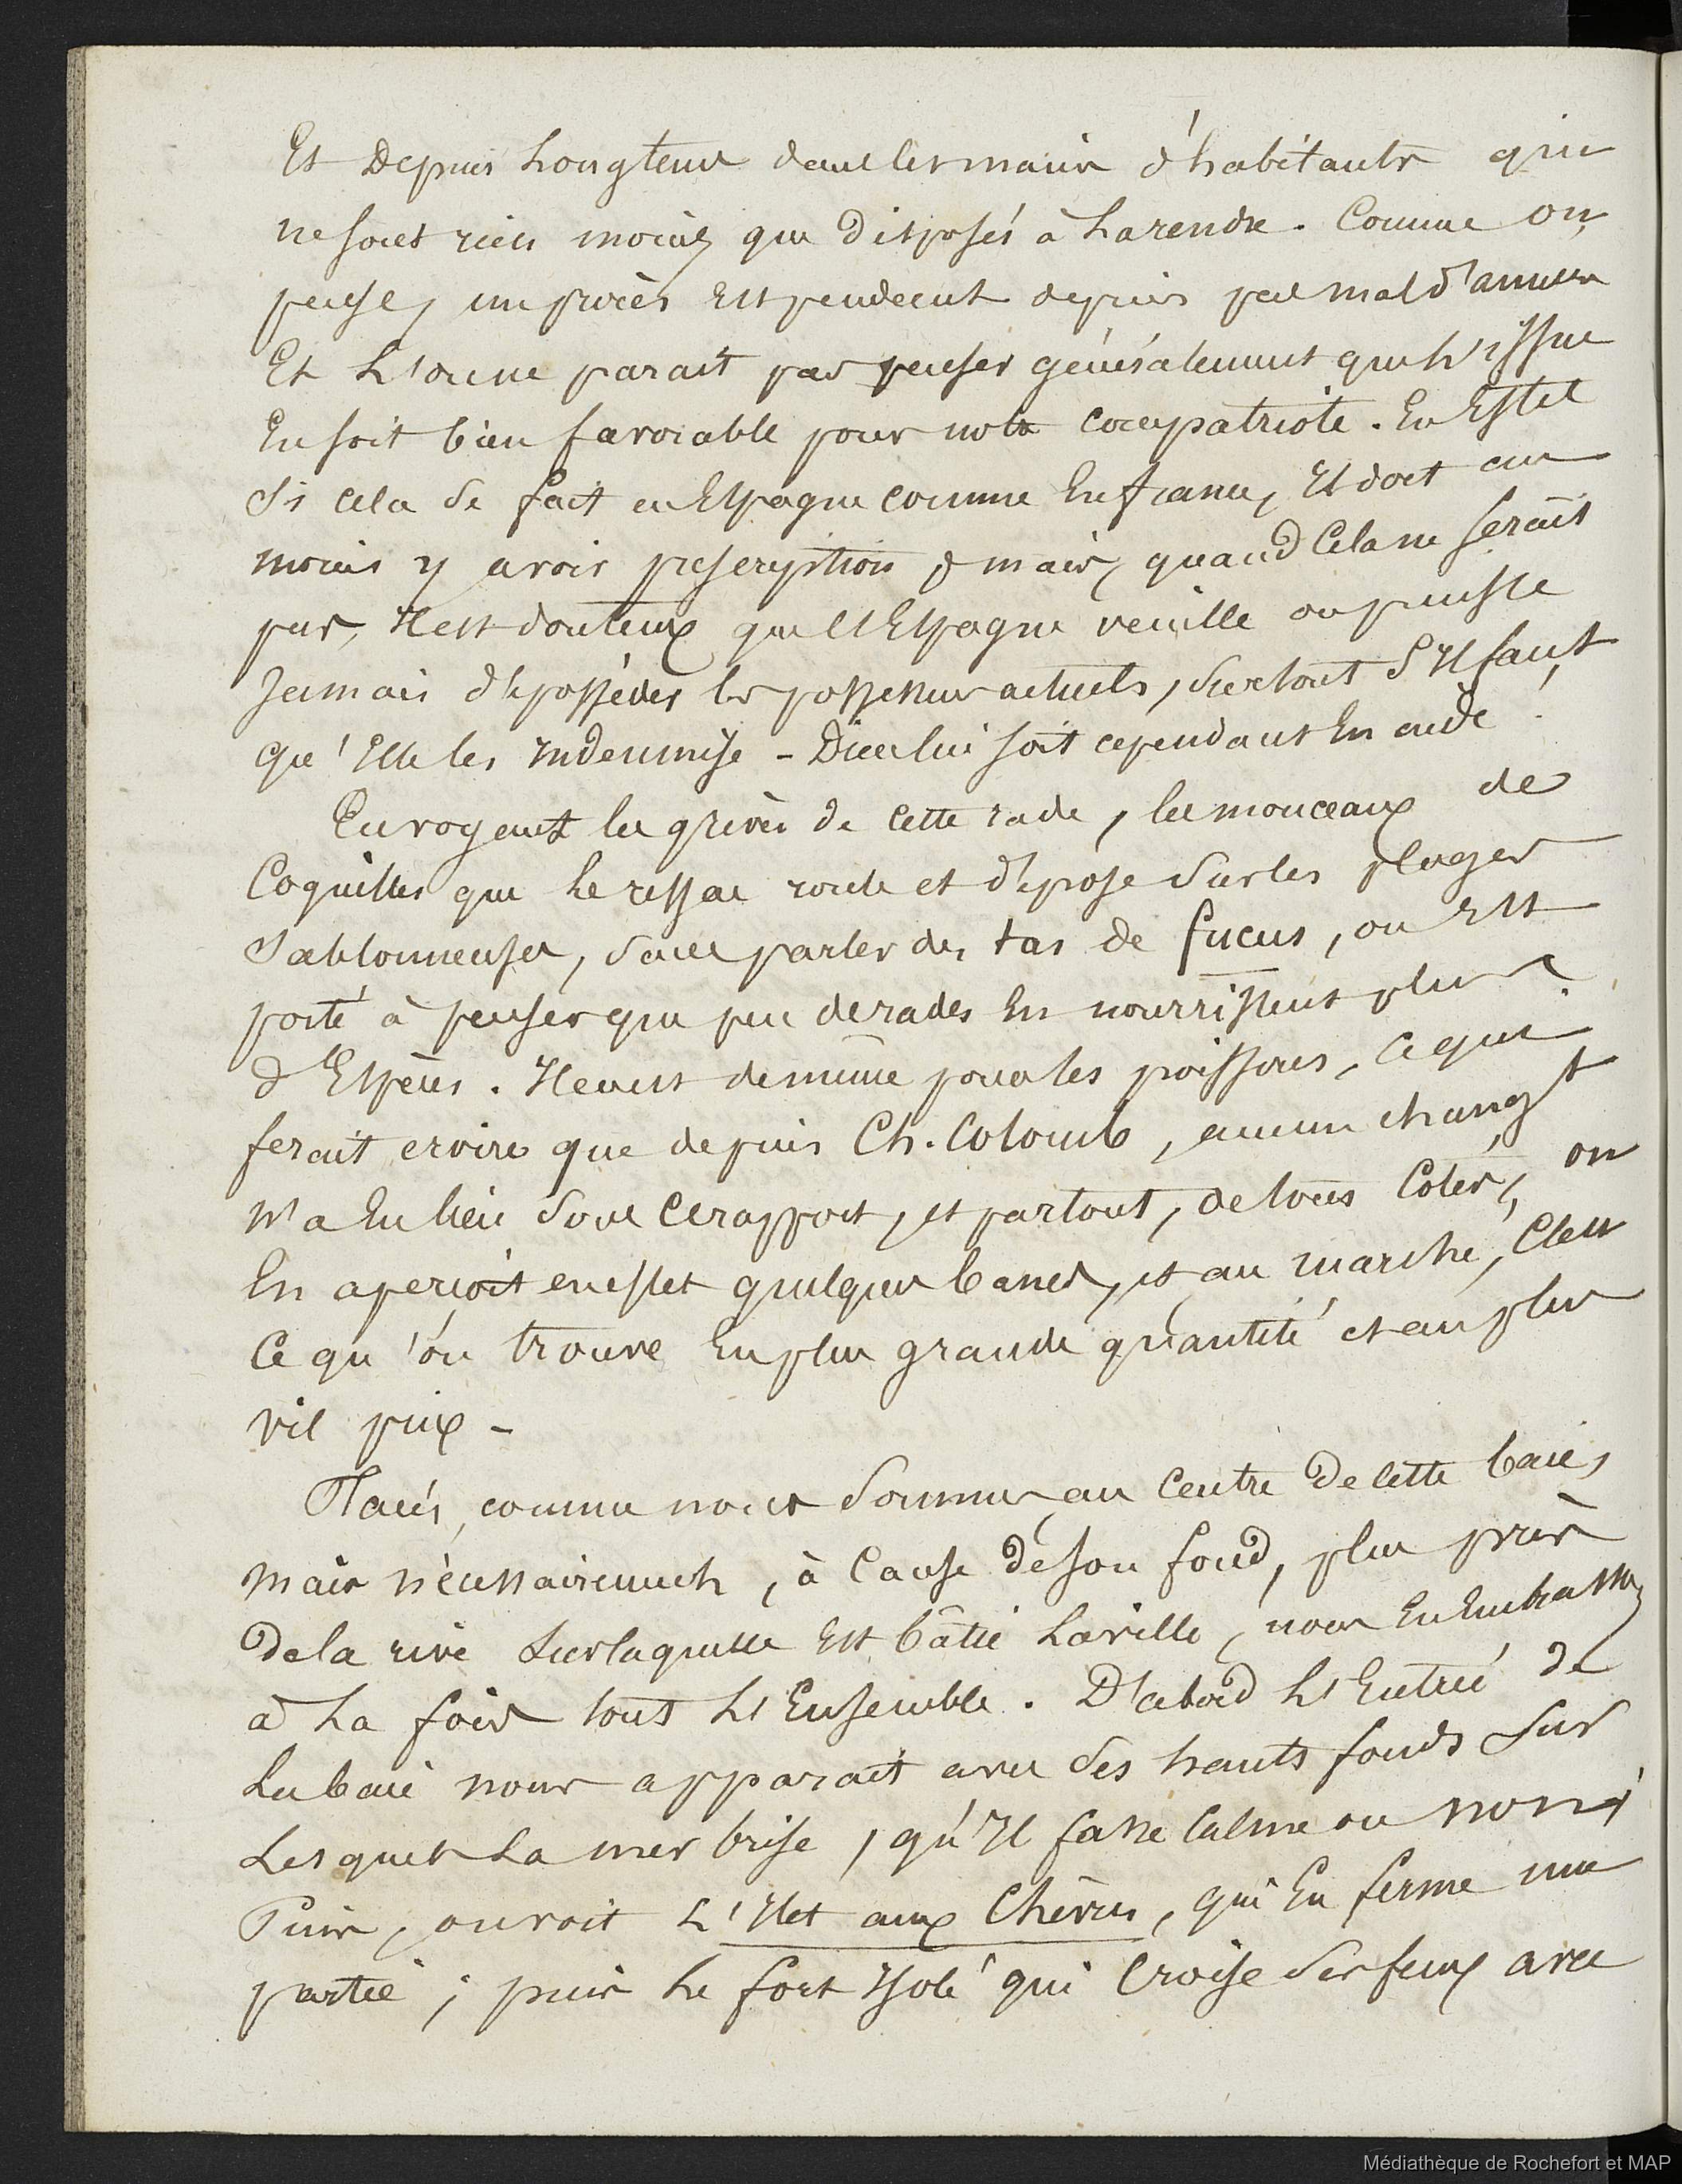 Et Depuis Longtems dans les mains d'habitants qui
ne sont rien moins que disposés à La rendre. Comme on
pense, un procès est pendant depuis pas mal d'années
Et L'on ne parait pas penser généralement que L'issue
En soit bien favorable pour notre compatriote. En Effet
Si cela se fait en Espagne comme En france, Il doit au
moins y avoir prescription ; mais, quand Cela ne serait
pas, Il est douteux que L'Espagne veuille ou puisse
Jamais déposséder les possesseurs actuels, surtout s'Il faut
qu'Elle les Indemnise - Dieu lui soit cependant En aide !
En voyant les grèves de cette rade, les monceaux de
Coquilles que Le ressac roule et dépose sur les plages
Sablonneuses, sans parler des tas de fucus, on Est
porté à penser que peu de rades En nourrissent plus
d'Espèces. Il en est de même pour les poissons, ce qui
ferait croire que depuis Ch. Colomb, aucun changt
N'a Eu Lieu sous ce rapport, et partout, de tous Cotés, on
En aperçoit en effet quelques bancs, et au marché, C'est
Ce qu'on trouve En plus grande quantité et au plus
vil prix -
Placés, comme nous Sommes, au Centre de cette baie,
mais nécessairement, à Cause de son fond, plus près
De la rive sur laquelle Est bâtie La ville, nous En Embrassons
à La fois tout L'Ensemble. D'abord L'Entrée de
La baie nous apparait avec ses hauts fonds sur
Lesquels La mer brise, qu'Il fasse Calme ou non ;
Puis, on voit L'Ilet aux Chèvres, qui En ferme une
partie ; puis Le fort Isolé qui Croise ses feux avec
Médiathèque de Rochefort et MAP